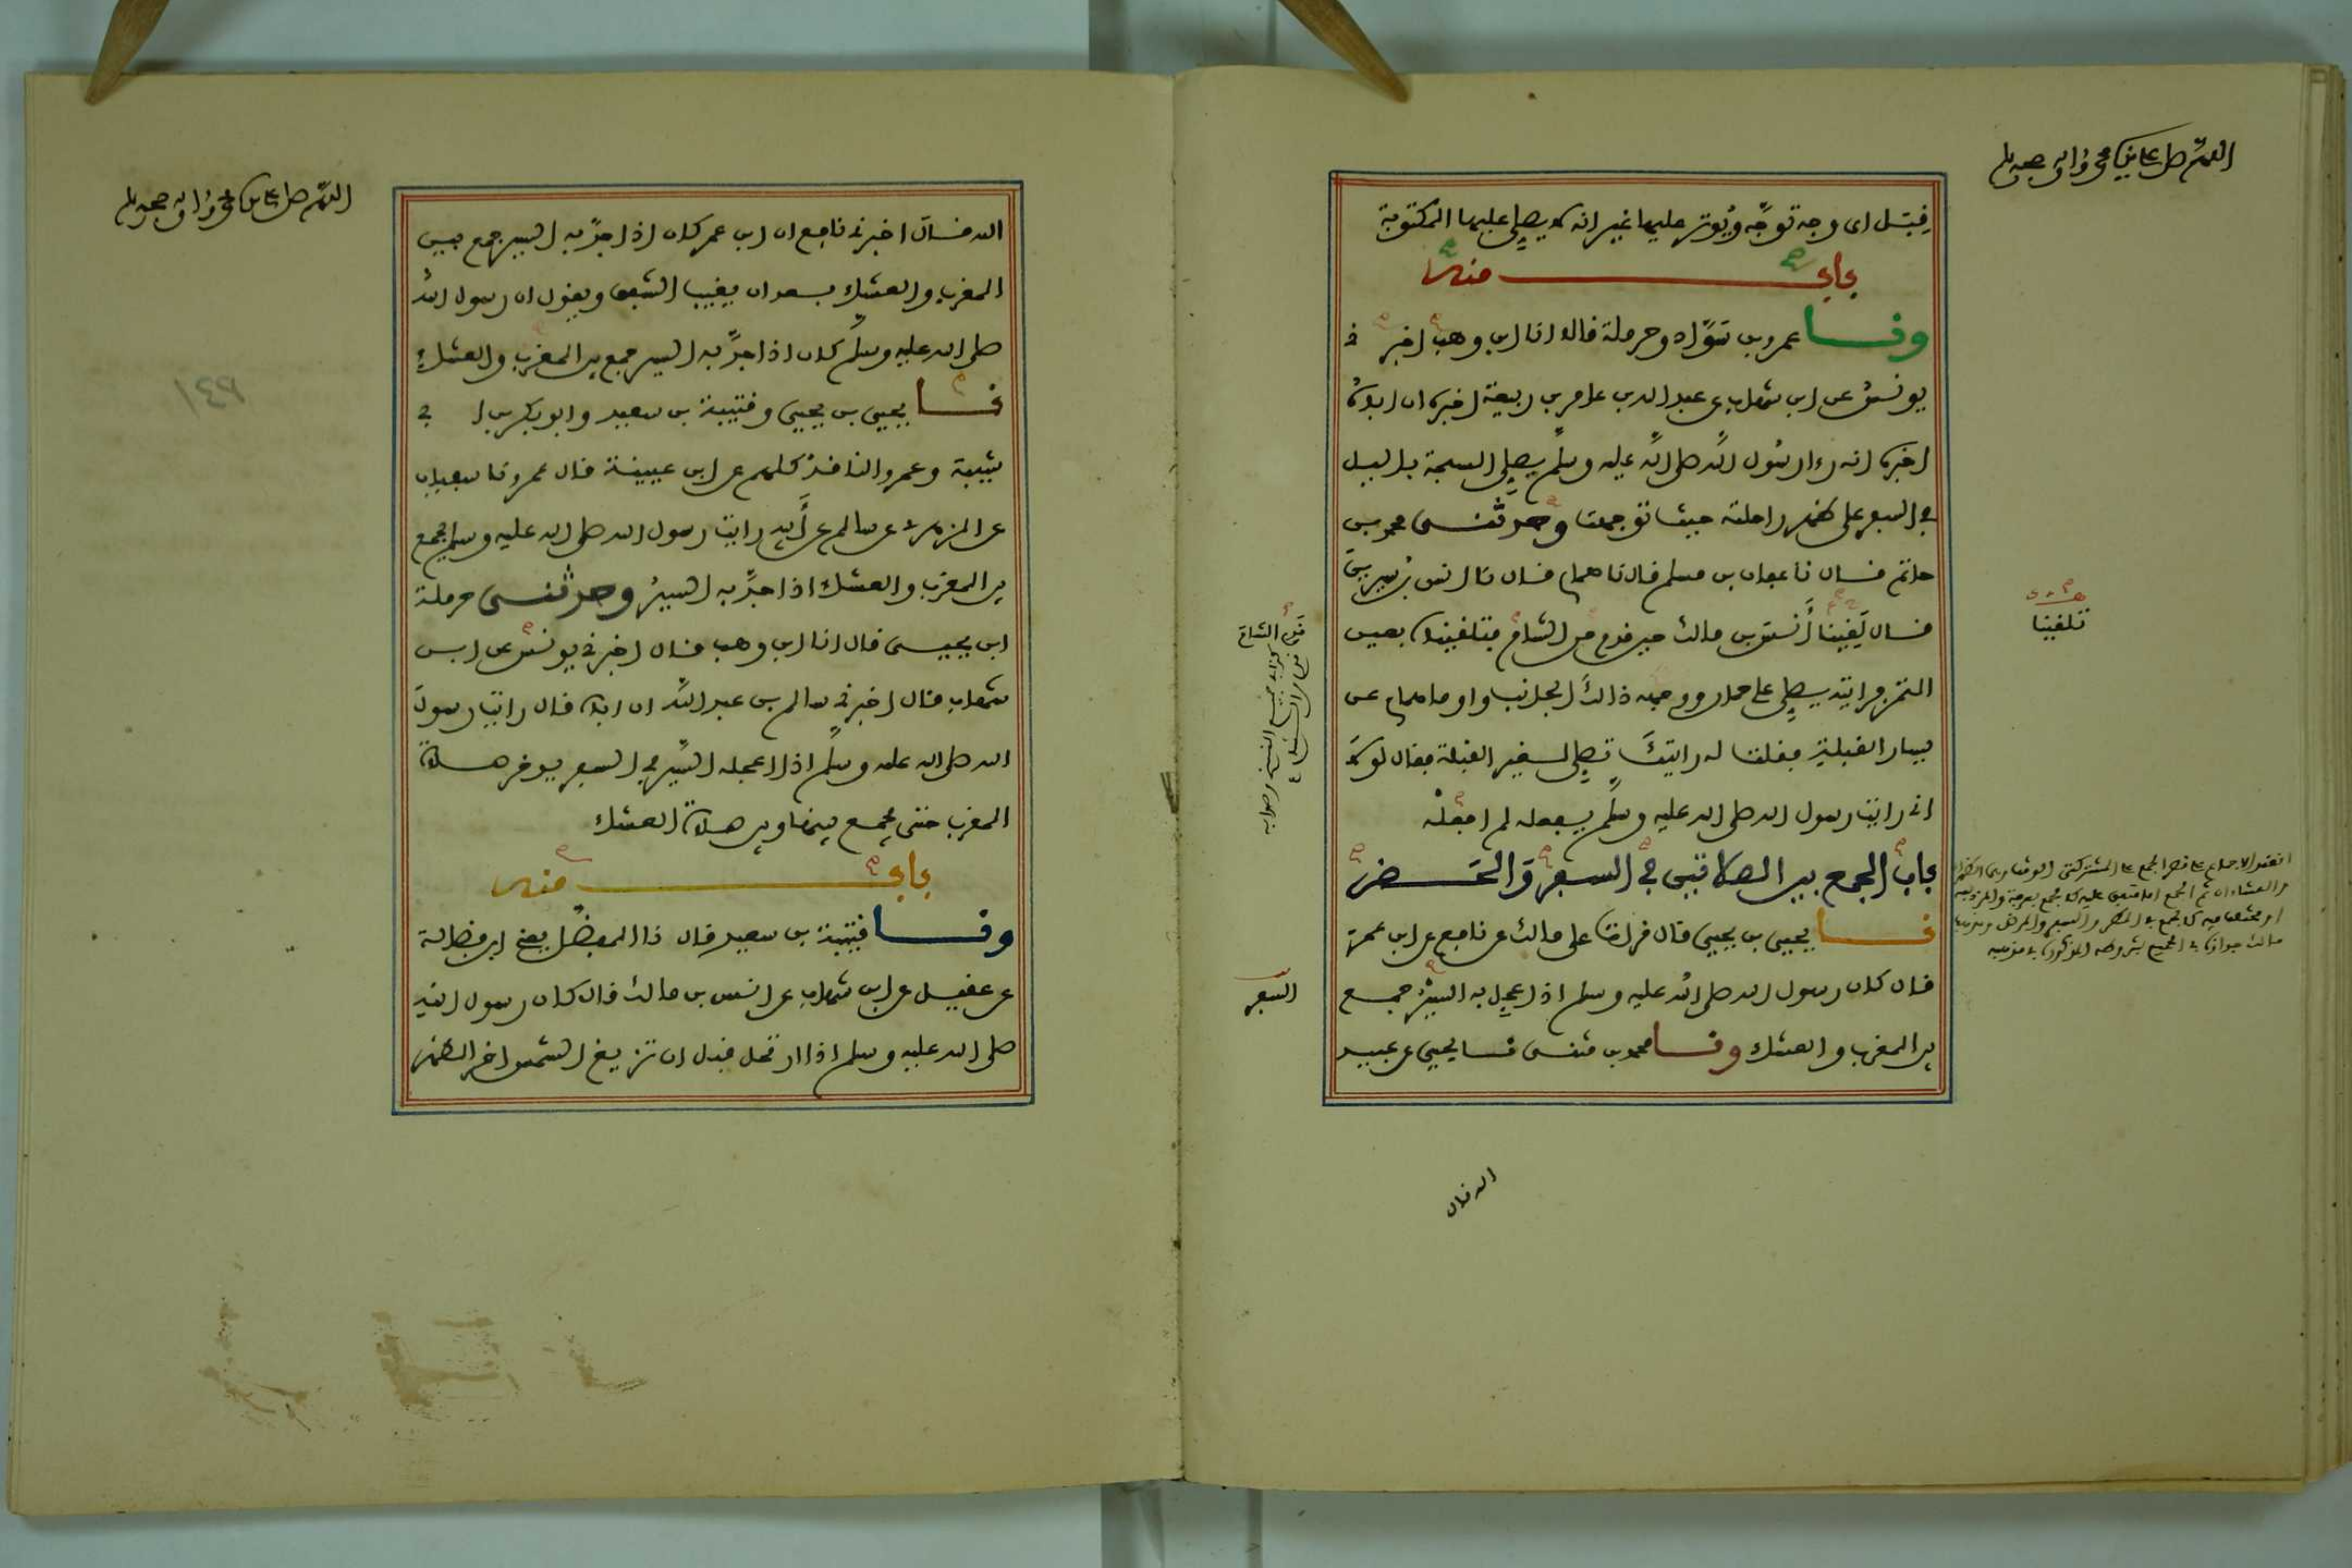 اللهم صل على نبينا محمد وءاله وصحبه وسلم
قِبَل اى وجه توجَّه ويُوتر عليها غير انه لا يصلِى عليها المكتوبة
باب منه
ونا عمرو بن سَوَّاد وحرملة قالا انا ابن وهب اخبرنى
يونس عن ابن شهاب عن عبد الله بن عامر بن ربيعة اخبره ان اباه
اخبره انه رءا رسُول الله صلى الله عليه وسلم يصلِى السبحة باليل
فى السفر على ظهر راحلته حيث توجهت وحدثنى محمد بن
حاتم قال نا عفان بن مسلم قال نا همام قال نا انس بن سيرين
قال لَقِينا أَنس بن مالك حين قدم من الشام فتلقيناه بعين
التمر فرايته يصلِى على حمار ووجهه ذالكَ الجانب واوما همام عن
يسار القبلة فقلت له رايتكَ تصلِى لغير القبلة فقال لولا
انى رايت رسول الله صلى الله عليه وسلم يفعله لم افعلْه
باب الجمع بين الصلاتين فى السفر وَالحَضر
نا يحيى بن يحيى قال قرات على مالك عن نافع عن ابن عمر
قال كان رسول الله صلى الله عليه وسلم اذا عجِل به السيرُ جمع
بين المغرب والعشاء ونا محمد بن مثنى نا يحيى عن عبيد
تلقينا
السفر
الله قال
اللهم صل على نبينا محمد وءاله وصحبه وسلم
١٤٩
الله قال اخبرنى نافع ان ابن عمر كان اذا جدَّ به السير جمع بين
المغرب والعشاء بعد ان يغيب الشفق ويقول ان رسول الله
صلى الله عليه وسلم كان اذا جدَّ به السير جمع بين المغرب والعشاءِ
نا يحيى بن يحيى وقتيبة بن سعيد وابو بكر بن ابى
شيبة وعمرو الناقد كلهم عن ابن عيينة قال عمرو نا سفيان
عن الزهرى عن سالم عن أَبيه رايت رسول الله صلى الله عليه وسلم يجمع
بين المغرب والعشاء اذا جدَّ به السيرُ وحدثنى حرملة
ابن يحيى قال انا ابن وهب قال اخبرنى يونس عن ابن
شهاب قال اخبرنى سالم بن عبد الله ان اباه قال رايت رسول
الله صلى الله عليه وسلم اذا اعجله السَّير فى السفر يوخر صلاة
المغرب حتى يجمع بينها وبين صلاة العشاء
باب منه
ونا قتيبة بن سعيد قال نا المفضل يعنى ابن فضالة
عن عقيل عن ابن شهاب عن انس بن مالك قال كان رسول الله
صلى الله عليه وسلم اذا ارتحل قبل ان تزيغ الشمس اخر الظهر